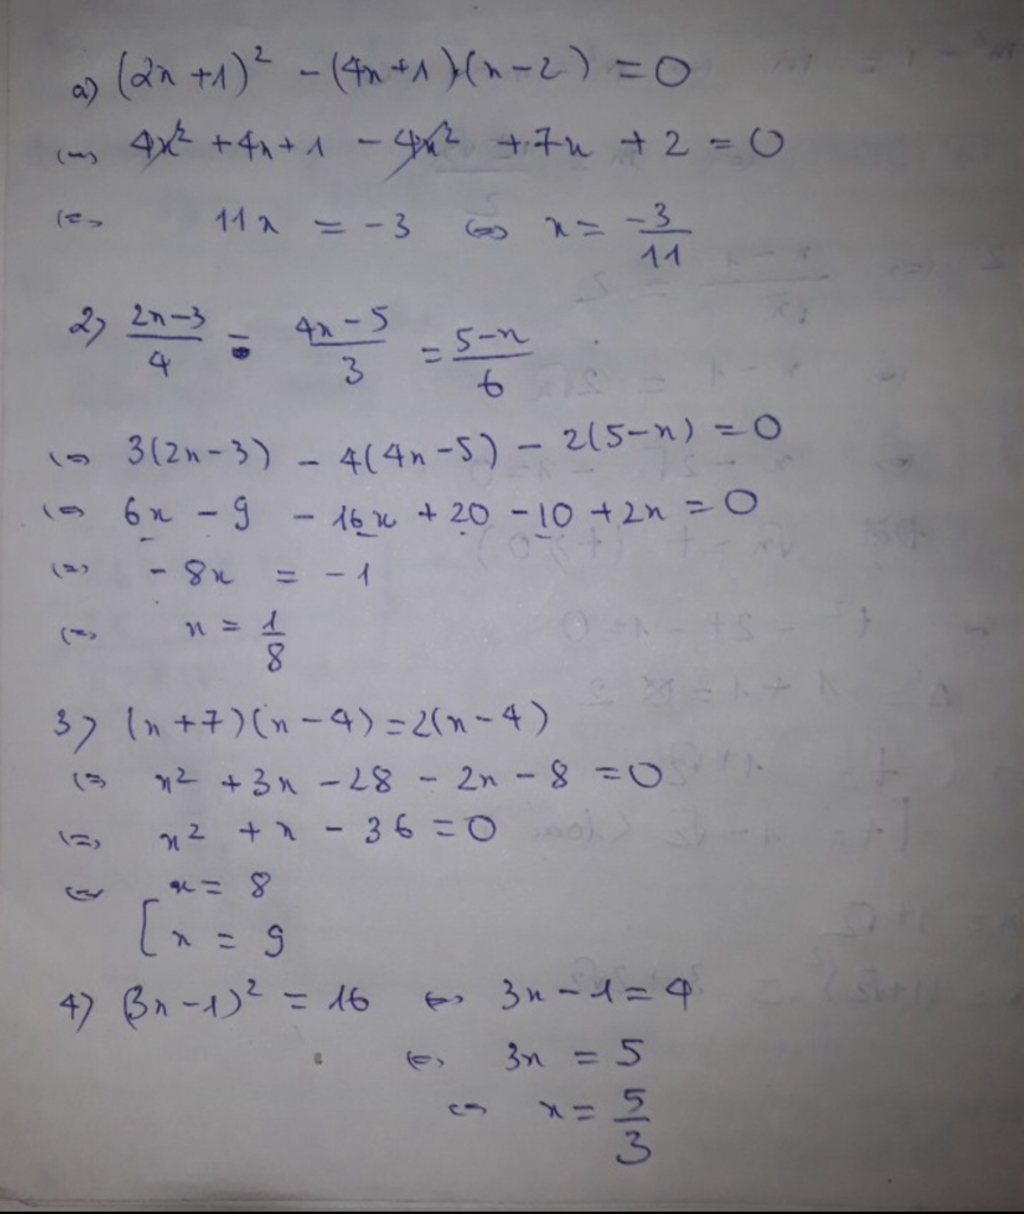 a) (2x+1)² - (4x+1)(x-2) = 0
(=) 4x² + 4x + 1 - 4x² + 7x + 2 = 0
(=) 11x = -3 (=) x = -3/11
2) (2x-3)/4 = (4x-5)/3 = (5-x)/6
(=) 3(2x-3) - 4(4x-5) - 2(5-x) = 0
(=) 6x - 9 - 16x + 20 - 10 + 2x = 0
(=) -8x = -1
(=) x = 1/8
3) (x+7)(x-4) = 2(x-4)
(=) x² + 3x - 28 - 2x - 8 = 0
(=) x² + x - 36 = 0
(=) [ x = 8
x = 9
4) (3x-1)² = 16 (=) 3x - 1 = 4
(=) 3x = 5
(=) x = 5/3